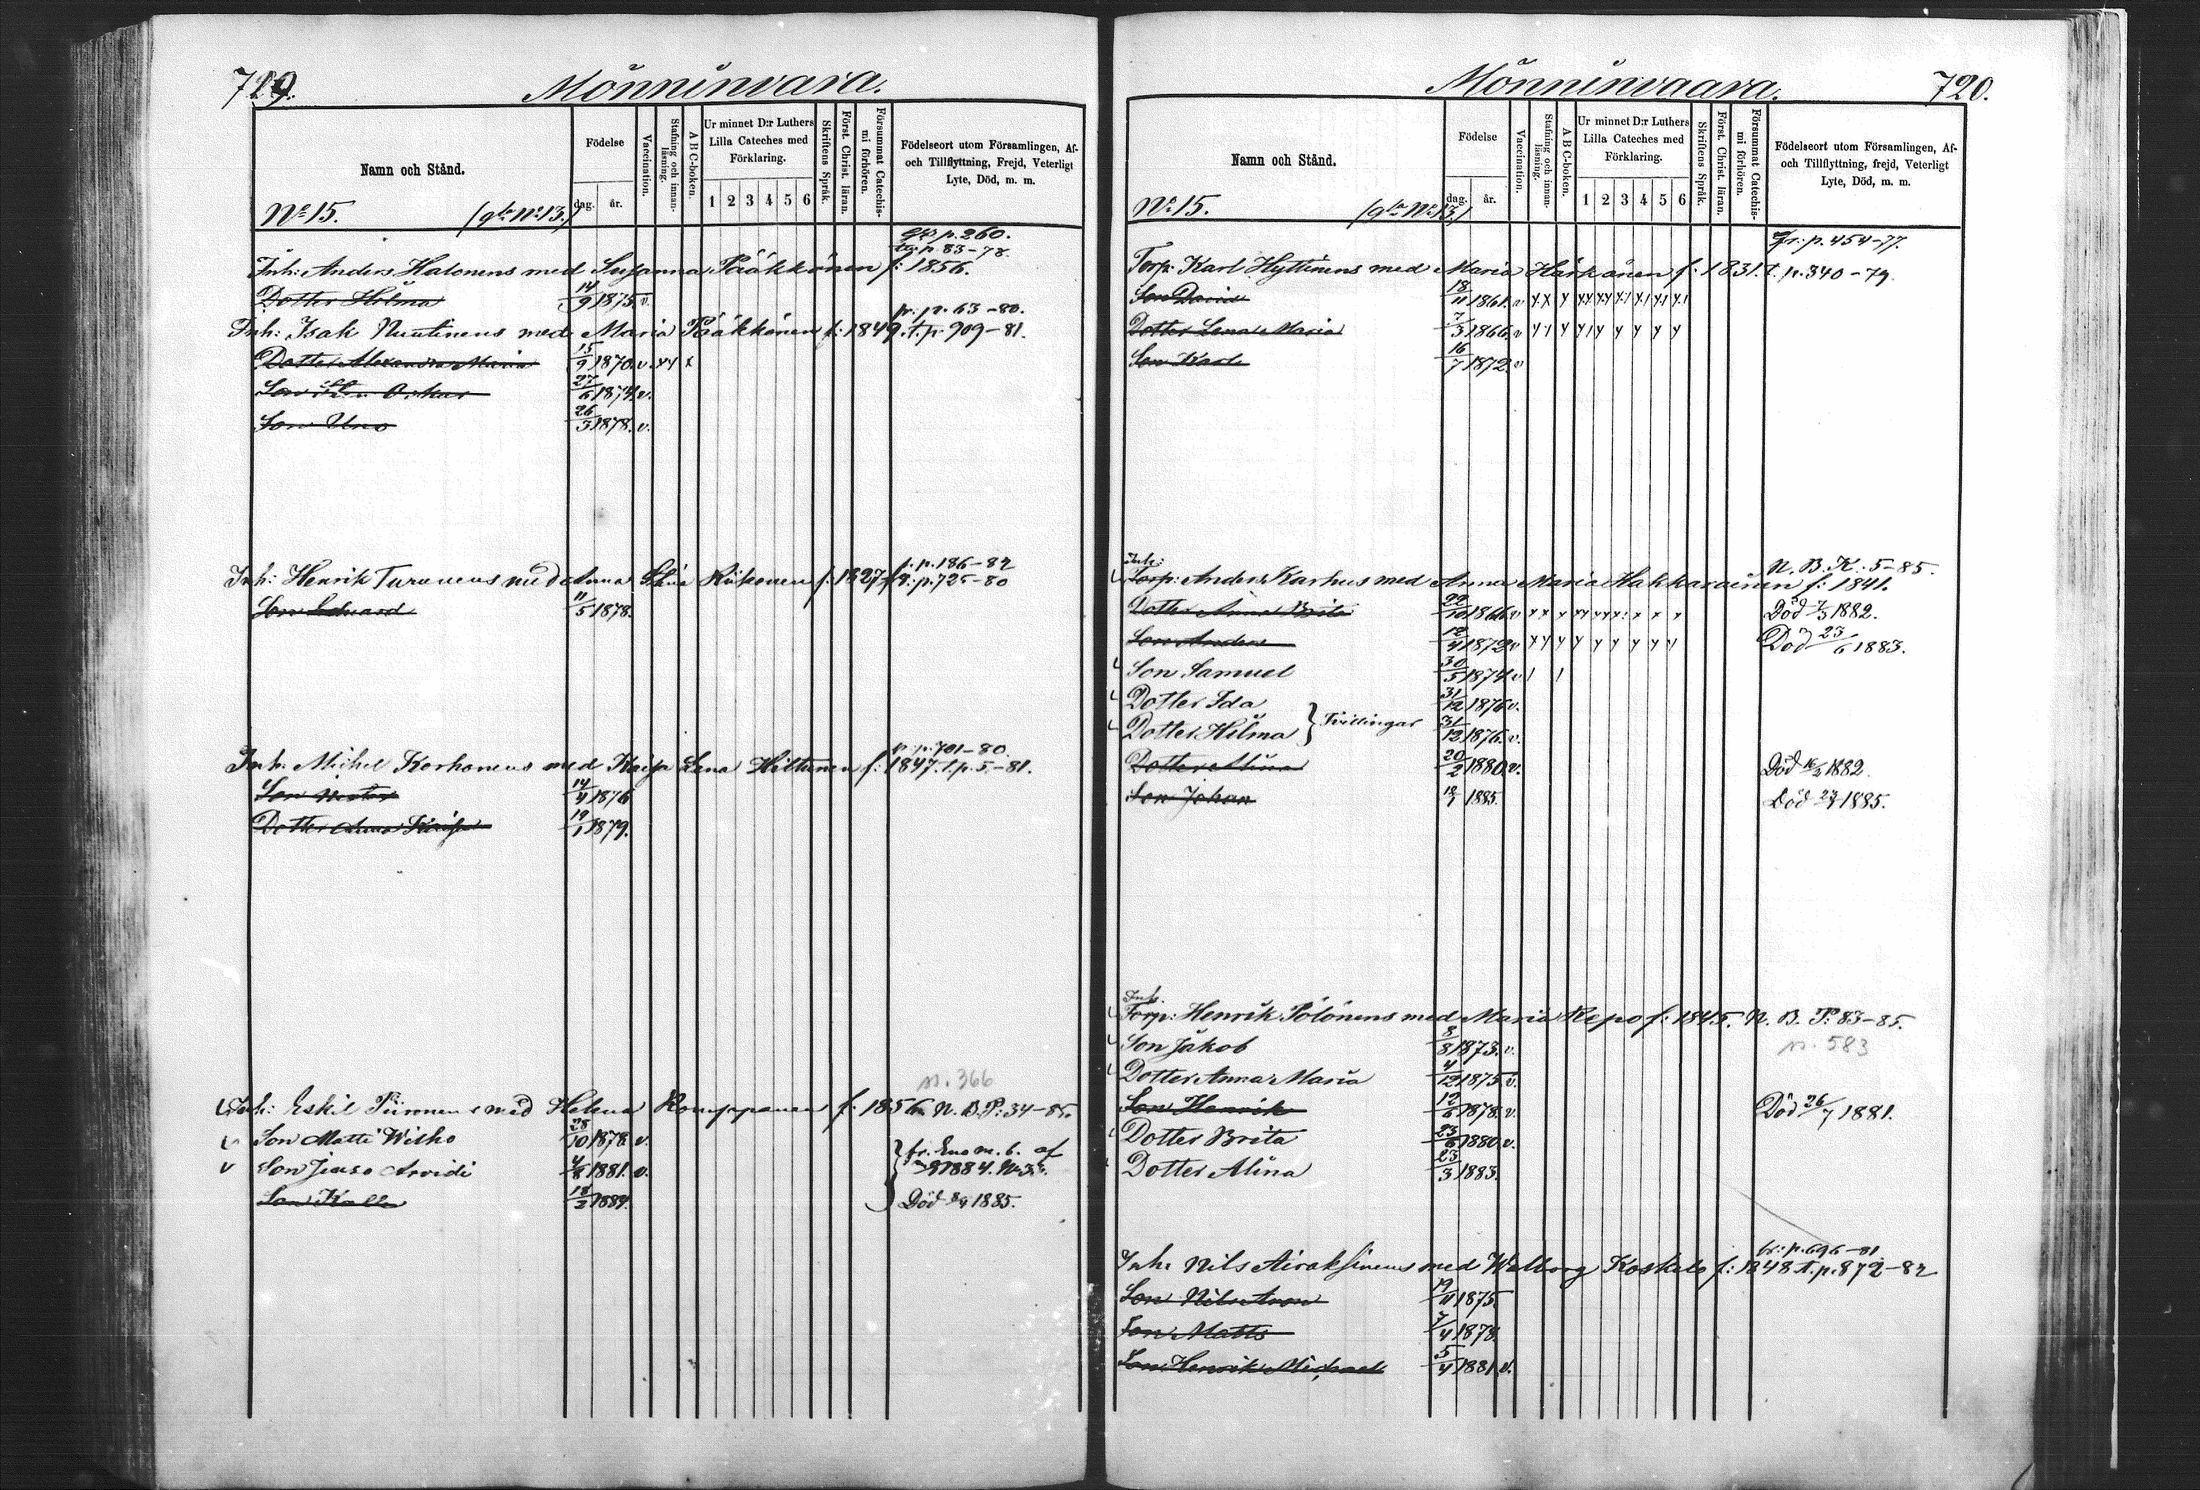 719.
Mönninvara.
Namn och Stånd.
Födelse
dag. år.
Vaccination.
Stafning och innanläsning.
ABC-boken.
Ur minnet D:r Luthers Lilla Cateches med Förklaring.
1 2 3 4 5 6
Skriftens Språk.
Först. Christ. läran.
Försummat Catechismi förhören.
Födelseort utom Församlingen, Af- och Tillflyttning, Frejd, Veterligt Lyte, Död, m. m.
No 15. (gla No 13.)
p. 260.
p. 83-78.
Inh: Anders Halonens med Susanna Pääkkönen f: 1856.
Dotter Hilma 14/9 1875. v.
fr. p. 63-80.
Inh: Isak Nuutinens med Maria Pääkkönen f: 1849. t. p. 909-81.
Dotter Alexandra Maria 15/9 1870. v. xy x
Son Oskar 27/6 1874. v.
Son Uno 26/3 1878. v.
f. p. 186-82
Inh: Henrik Turunens med Anna Riikonen f: 1827. t. p. 725-80
Son Eduard 11/5 1878.
p. 701-80.
Inh. Michel Korhonens med Kaisa Lena Hiltunen f: 1847. t. p. 5.-81.
Son 14/4 1876
Dotter Anna Kaisa 19/1 1879.
p. 366
Inh: Eskil Piironens med Helena Romppanen f: 1856 N. B. P: 34-85.
Son Matti Wilho 28/10 1878 v.
fr. Eno m. b. af
Son Arvidi 4/8 1881. v.
1884. No 33.
Son Kalle 18/2 1884.
Död 8/9 1885.
Mönninvaara.
720.
Namn och Stånd.
Födelse
dag. år.
Vaccination.
Stafning och innanläsning.
ABC-boken.
Ur minnet D:r Luthers Lilla Cateches med Förklaring.
1 2 3 4 5 6
Skriftens Språk.
Först. Christ. läran.
Försummat Catechismi förhören.
Födelseort utom Församlingen, Af- och Tillflyttning, frejd, Veterligt Lyte, Död, m. m.
No 15. (gla No 13.)
fr: p. 454-77.
Torp: Karl Hyttinens med Maria Härkönen f: 1831. t. p. 340-79.
Son David 18/11 1861. v
Dotter Lena Maria 7/3 1866. v
Son Karl 16/7 1872. v
Inh:
N. B. K: 5-85.
Torp: Anders Karhus med Anna Maria Hakkarainen f: 1841.
Dotter Anna Brita 22/10 1866. v Död 7/3 1882.
Son Anders 12/4 1872 v Död 23/6 1883.
Son Samuel 30/5 1874 v
Dotter Ida 31/12 1876 v.
Tvillingar
Dotter Hilma 31/12 1876. v.
Dotter Alina 20/2 1880. v. Död 16/3 1882.
Son Johan 18/1 1885. Död 1885.
Inh.
Torp: Henrik Pölönens med Maria Repo f: 1845. N. B. P: 83-85.
p. 583
Son Jakob 8/8 1873. v.
Dotter Anna Maria 4/12 1875 v.
Son Henrik 12/6 1878. v. Död 26/7 1881.
Dotter Brita 23/6 1880. v.
Dotter Alina 23/3 1883.
fr: p. 696-81
Inh: Nils Airaksinens med Walborg Koskelo f: 1848 t. p. 872-82
Son Nils Aron 19/11 1875
Son Matts 7/4 1878.
Son Henrik Michael 5/4 1881 v.